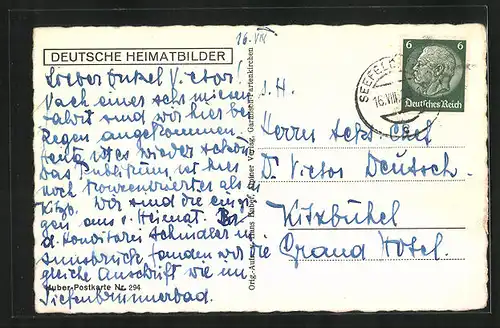 16. VIII
DEUTSCHE HEIMATBILDER
Lieber Onkel Victor!
Nach einer sehr miesen
Fahrt sind wir hier bei
Regen angekommen.
Heute ist es wieder schön.
Das Publikum ist hier
noch als in
Kitzb. Wir sind die einzi-
gen aus d. Heimat. In
d. Konditorei Schindler in
Innsbruck fanden wir die
gleiche Aufschrift wie im
Tiefenbrunnerbad.
Huber-Postkarte Nr. 294
Orig.-Aufn. Huber, Verlag, Garmisch-Partenkirchen
SEEFELD
16.VIII.
6 6
Deutsches Reich
S. H.
Herrn Chef
Dr. Victor Deutsch
Kitzbühel
Grand Hotel.